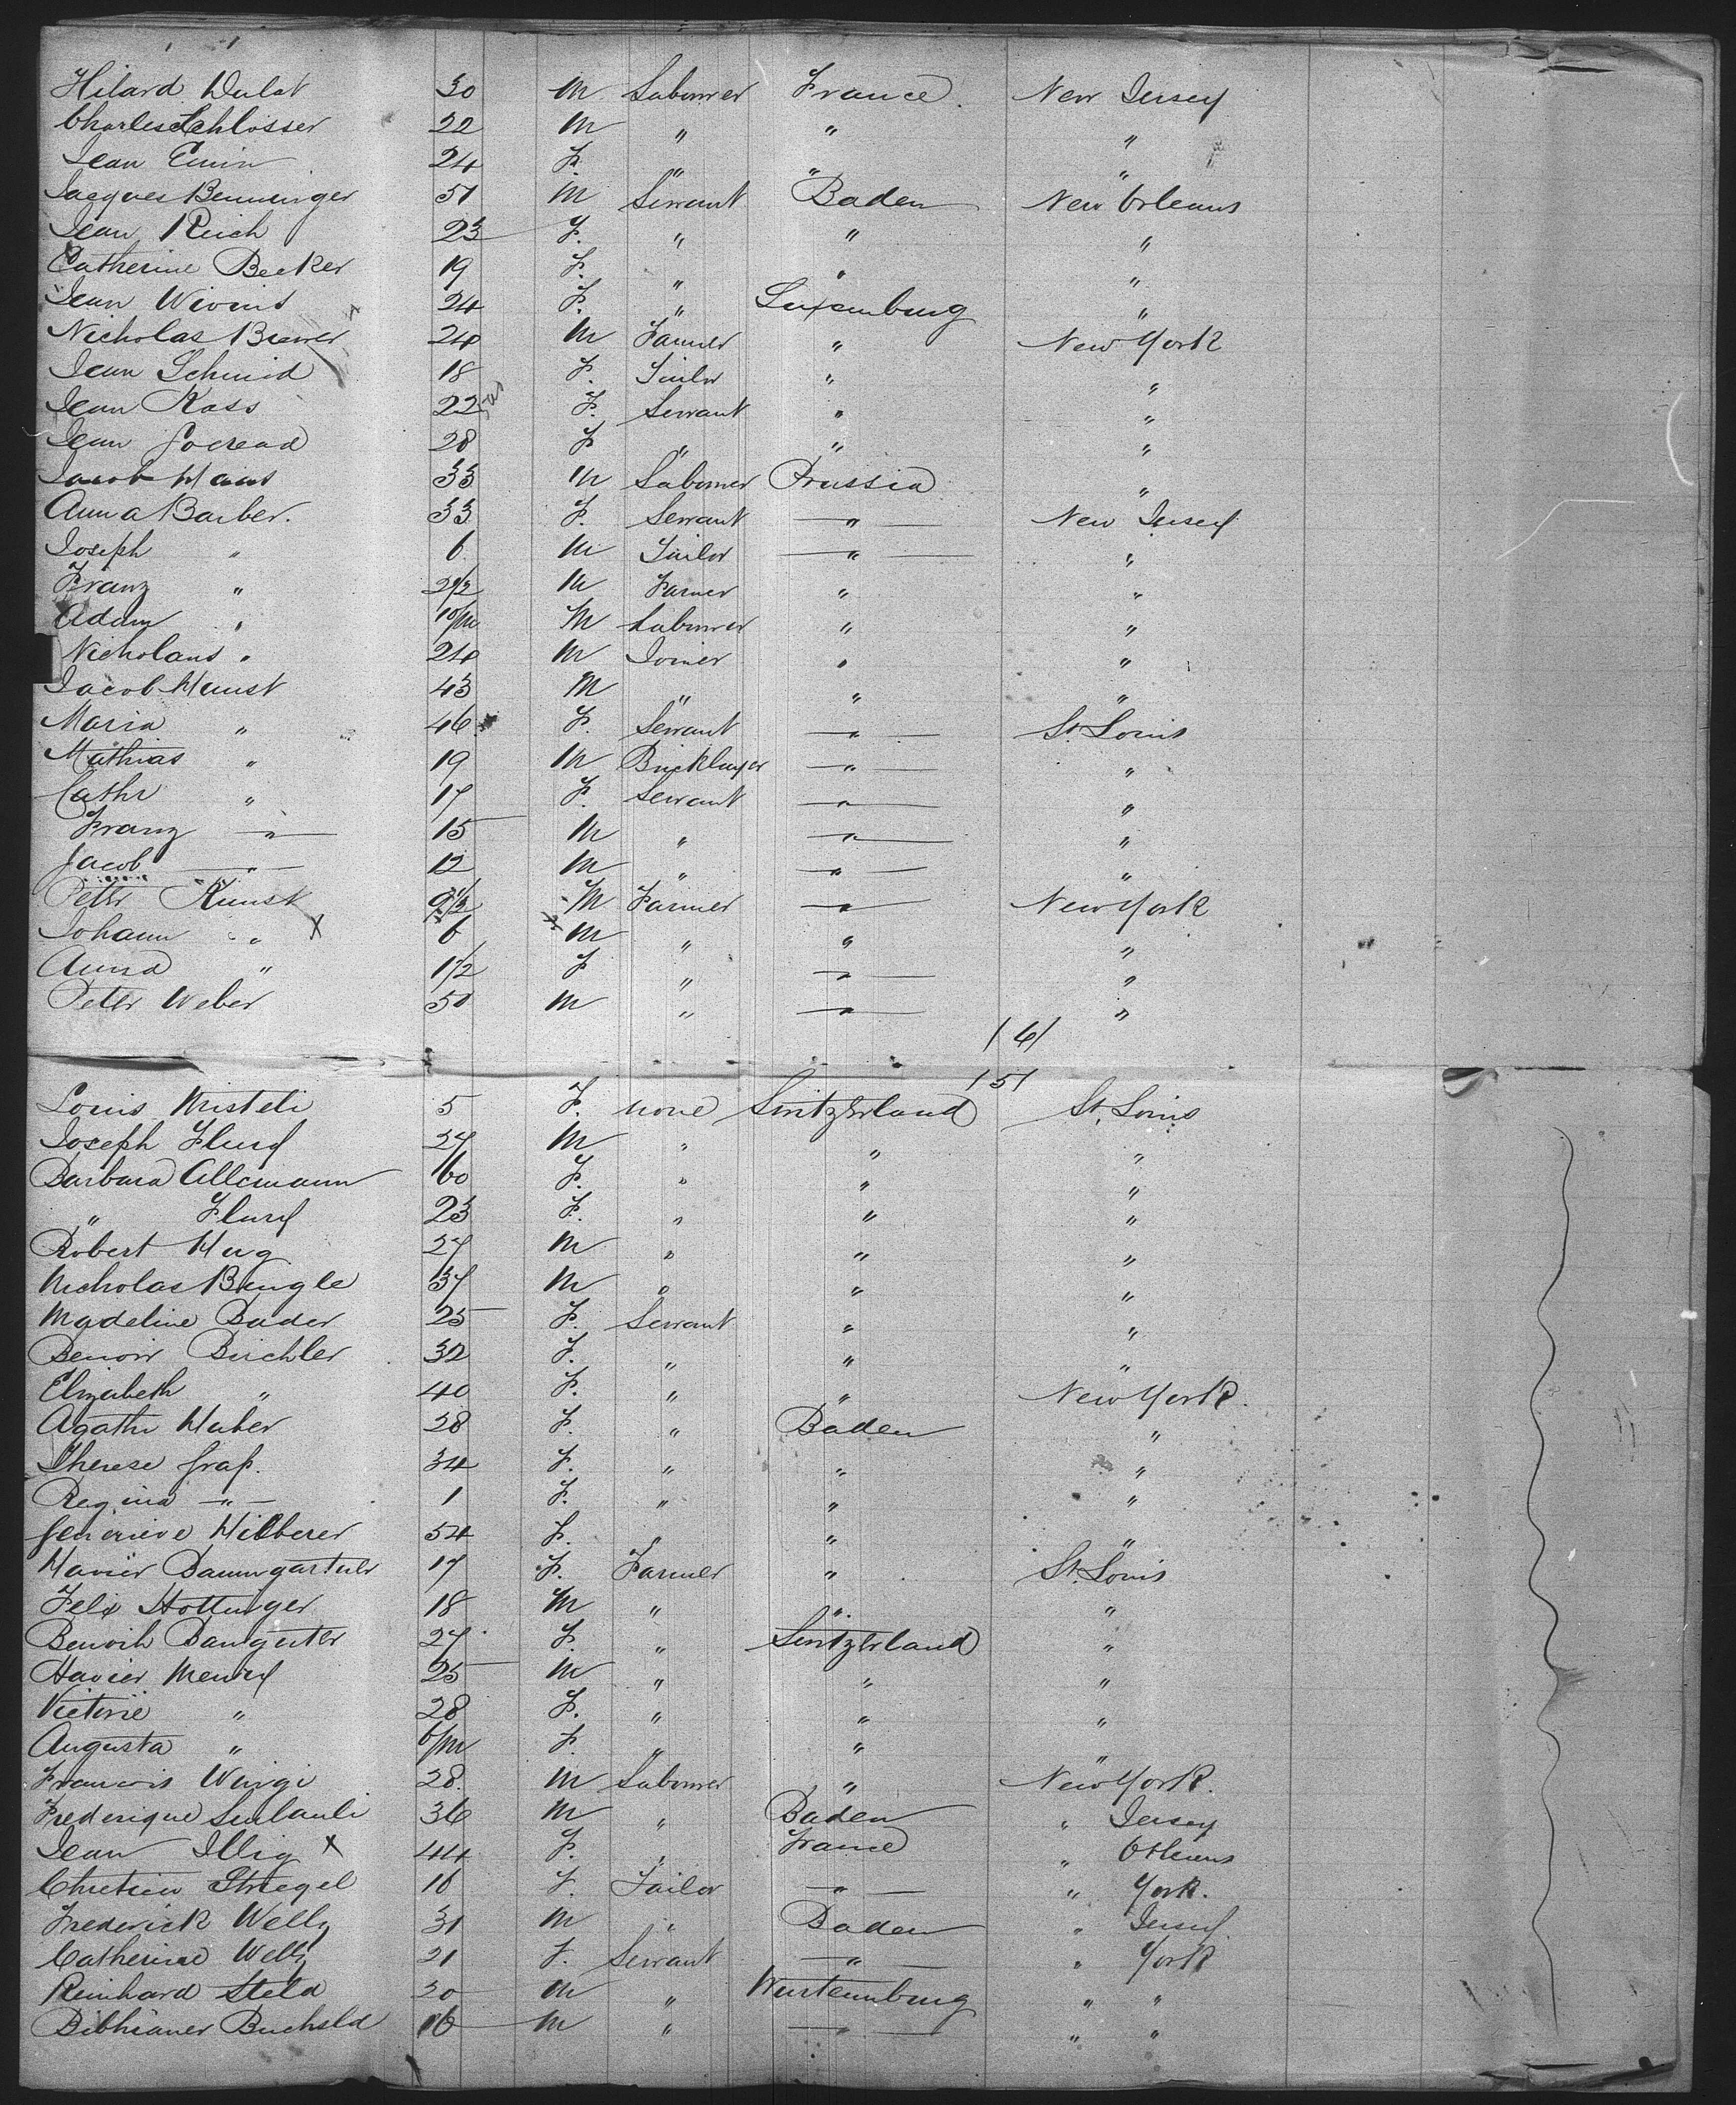 Hilard Dulat 30 M Labourer France. New Jersey
Charles Schlosser 22 M " " "
Jean Emin 24 F. " " "
Jacques Benninger 51 M Servant Baden New Orleans
Jean Reich 23 F. " " "
Catherine Becker 19 F. " " "
Jean Wivins 24 F. " Luxemburg "
Nicholas Biewer 24 M Farmer " New York
Jean Schmid 18 F. Tailor " "
Jean Kass 22 F. Servant " "
Jean Goeread 28 F " " "
Jacob Haas 33 M Labourer Prussia "
Anna Barber. 33 F. Servant " New Jersey
Joseph " 6 M Tailor " "
Franz " 2 1/2 M Farmer " "
Adam " 10/m M Labourer " "
Nicholaus " 24 M Joiner " "
Jacob Kunst 43 M " " "
Maria " 46 F. Servant " St. Louis
Mathias " 19 M Bricklayer " "
Cathr " 17 F. Servant " "
Franz " 15 M " " "
Jacob " 12 M " " "
Peter Kunst 9 1/2 M Farmer " New York
Johann " X 6 M " " "
Anna " 1 1/2 F " " "
Peter Weber 50 M " " "
161
151
Louis Misteli 5 F. none Switzerland St. Louis
Joseph Flury 27 M " " "
Barbara Allemann 60 F. " " "
" Flury 23 F. " " "
Robert Hug 27 M " " "
Nicholas Bengle 37 M " " "
Madeline Bader 25 F. Servant " "
Benoir Birchler 32 F. " " "
Elizabeth " 40 F. " " New York.
Agathe Huber 28 F. " Baden "
Therese Graf. 34 F. " " "
Regina " 1 F. " " "
Genevieve Hilberer 54 F. " " "
Xavier Baumgartner 17 F. Farmer " St. Louis
Felix Hottinger 18 M " " "
Benoih Bangerter 27 F. " Switzerland "
Xavier Meury 25 M " " "
Victorie " 28 F. " " "
Augusta " 6/m F. " " "
Francois Wingi 28. M Labourer " New York.
Frederique Surlauli 36 M " Baden " Jersey
Jean Illig X 44 F. " France " Orleans
Chretien Striegel 16 F. Tailor " " York.
Frederick Welly 31 M " Baden " Jersey
Catherine Welly 21 F. Servant " " York
Reinhard Steld 20 M " Wurtemburg " "
Bibhianer Buchsld 16 M " " " "